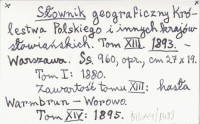 Słownik geograficzny Kró-
lestwa Polskiego i innych krajów
słowiańskich. Tom XIII. 1893. —
Warszawa. Ss. 960, opr., cm 27 x 19.
Tom I: 1880.
Zawartość tomu XIII: hasła
Warmbrun — Worowo.
Tom XIV: 1895.